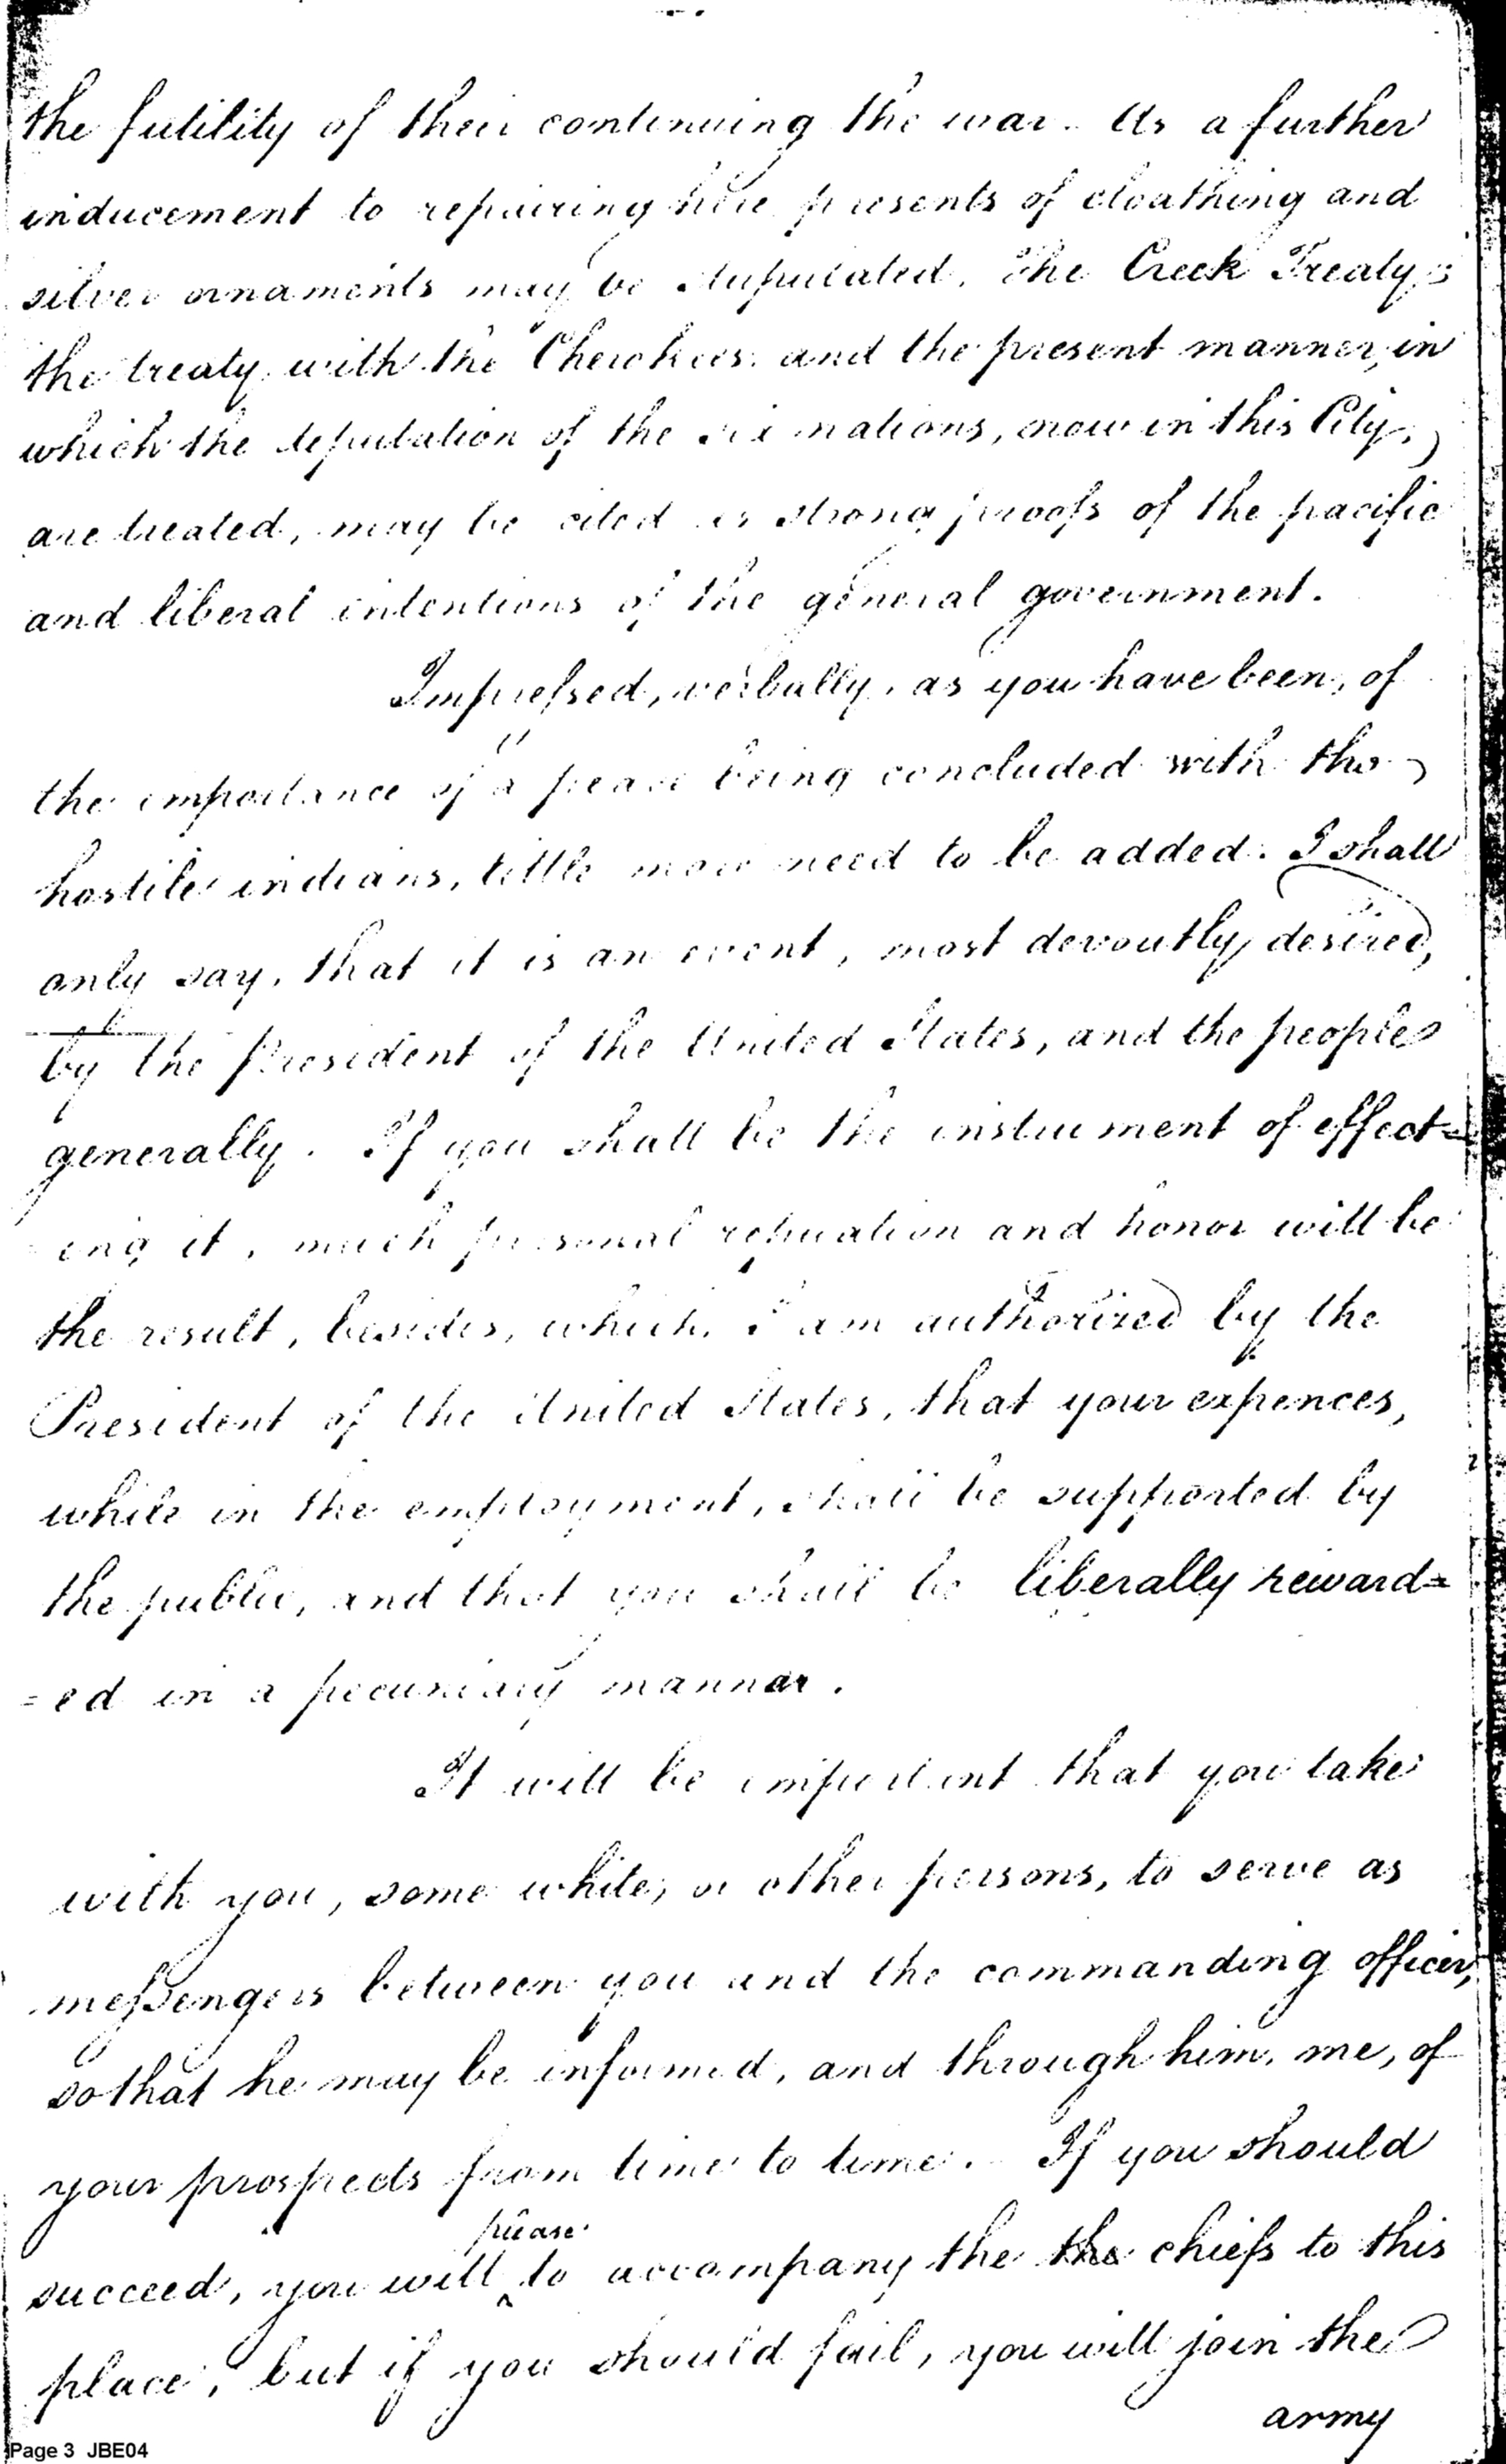 the futility of their continuing the war. As a further
inducement to repairing here presents of cloathing and
silver ornaments may be stipulated. The Creek Treaty,
the treaty with the Cherokees. and the present manner, in
which the deputation of the six nations, now in this City,
are treated, may be cited as strong proofs of the pacific
and liberal intentions of the general government.
Impressed, verbally, as you have been, of
the importance of a peace being concluded with the
hostile indians, little more need to be added. I shall
only say, that it is an event, most devoutly desired,
by the President of the United States, and the people
generally. If you shall be the instrument of effect=
ing it, much personal repuation and honor will be
the result, besides, which, I am authorized by the
President of the United States, that your expences,
while in the employment, shall be supported by
the public, and that you shall be liberally reward=
=ed in a pecuniary mannar.
It will be important that you take
with you, some white, or other persons, to serve as
messengers between you and the commanding officer,
so that he may be informed, and through him, me, of
your prospects from time to time. If you should
please
succeed, you will ^ to accompany the the chiefs to this
place, but if you should fail, you will join the
army
Page 3 JBE04